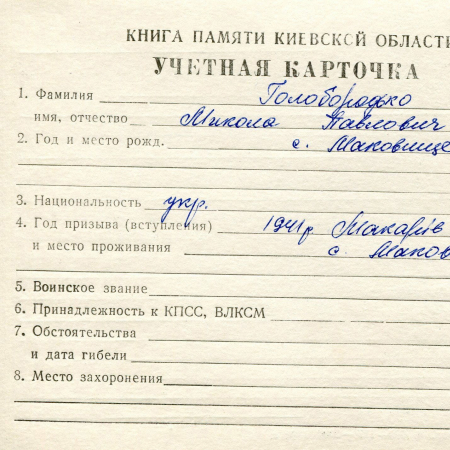 КНИГА ПАМЯТИ КИЕВСКОЙ ОБЛАСТИ
УЧЕТНАЯ КАРТОЧКА
1. Фамилия Голобородько
имя, отчество Микола Павлович
2. Год и место рожд. с. Маковище
3. Национальность укр.
4. Год призыва (вступления) 1941р. Макарів
и место проживания с. Маков
5. Воинское звание
6. Принадлежность к КПСС, ВЛКСМ
7. Обстоятельства
и дата гибели
8. Место захоронения